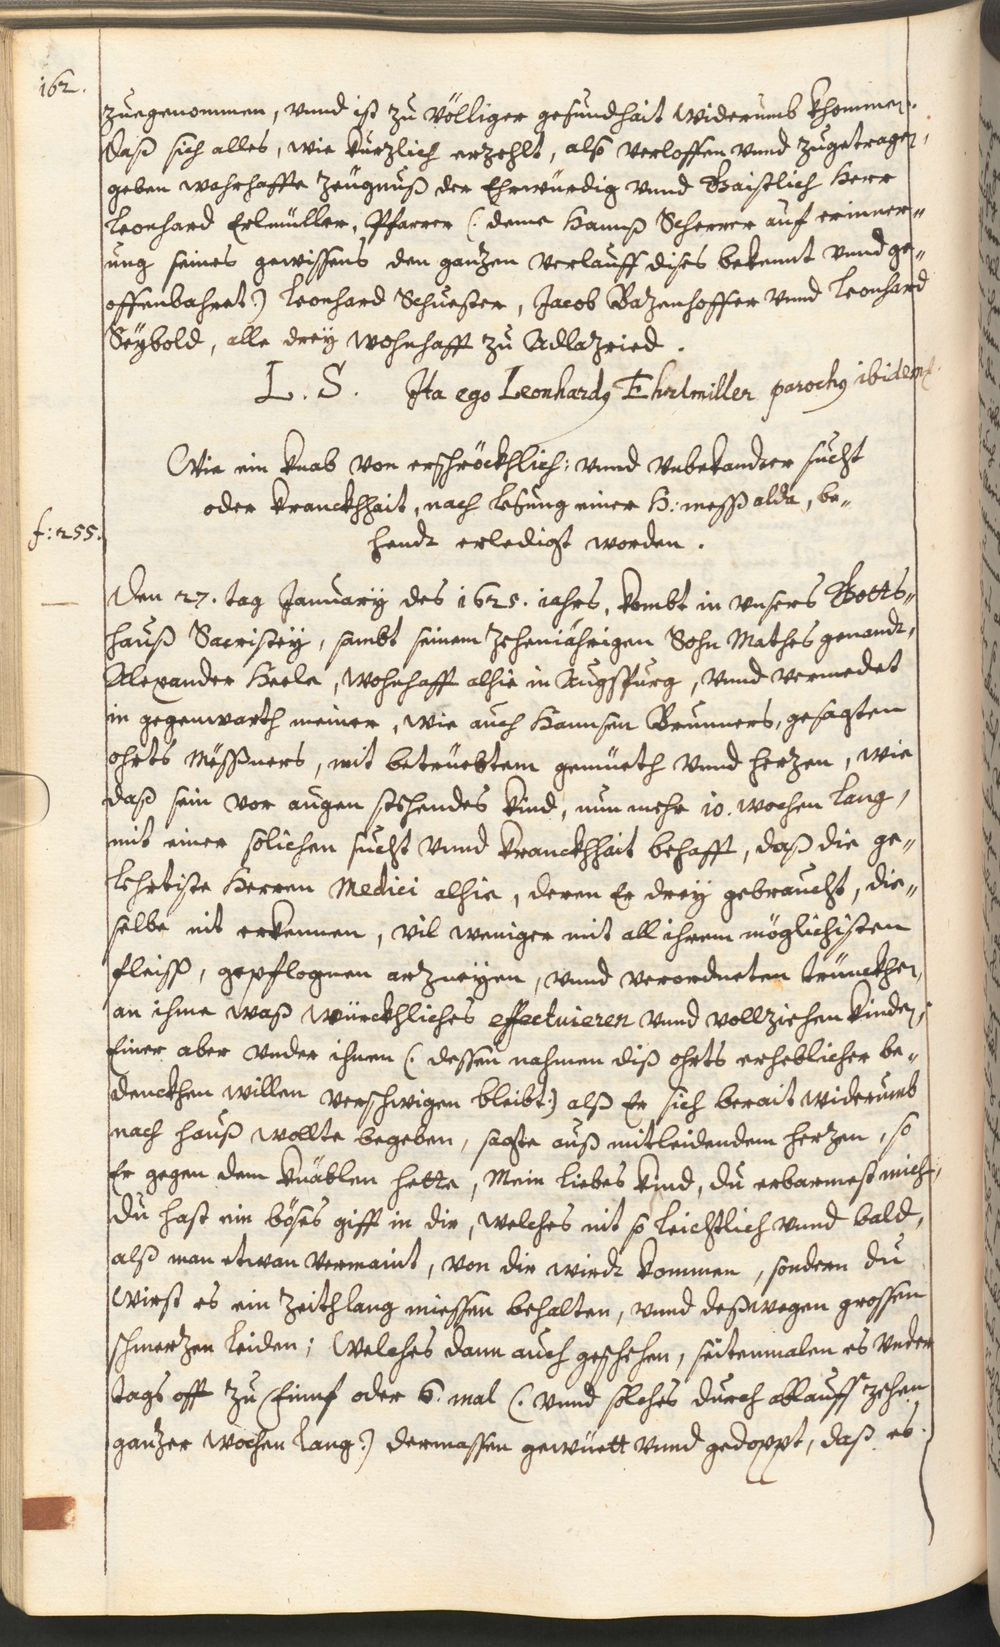 162.
zuegenommen, vnnd ist zu völliger gesundhait widerumb khommen.
Daß sich alles, wie kürzlich erzehlt, also verloffen vnnd zugetragen,
geben wahrhaffte Zeügnuß der Ehrwürdig vnnd Gaistlich Herr
Leonhard Erlmüller, Pfarrer (: deme Hannß Scherrer auf erinner„
ung seines gewissens den ganzen verlauff dises bekennt vnnd ge„
offenbahret:) Leonhard Schuester, Jacob Bazenhoffer vnnd Leonhard
Seybold, alle drey wohnhafft zu Adlazried.
L. S. Ita ego Leonhardus Ehrlmiller parochus ibidem.
Wie ein knab von erschröckhlich: vnnd vnbekandter sucht
oder kranckhhait, nach lesung einer H: mess alda, be„
hendt erledigt worden.
f: 255.
Den 27. tag January des 1625. iahrs, kombt in vnsers Gotts„
hauß Sacristey, sambt seinem zehenjährigen Sohn Mathes genandt,
Alexander Heele, wohnhafft alhie in Augspurg, vnnd vermeldet
in gegenwarth meiner, wie auch Hannsen Brunners, gesagten
ohrts Mössners, mit betrüebtem gemüeth vnnd herzen, wie
daß sein vor augen stehendes kind, nun mehr 10. wochen lang,
mit einer solichen sucht vnnd kranckhhait behafft, daß die ge„
lehrtiste Herren Medici alhie, deren Er drey gebraucht, die„
selbe nit erkennen, vil weniger mit all ihrem möglichisten
fleiss, gepflognen arzneyen, vnnd verordneten trünckhen,
an ihme waß würckhliches effectuieren vnnd vollziehen kinden;
Einer aber vnder ihnen (: dessen nahmen diß ohrts erheblicher be„
denckhen willen verschwigen bleibt:) alß Er sich berait widerumb
nach hauß wollte begeben, sagte auß mitleidendem herzen, so
Er gegen dem knäblen hette, Mein liebes kind, du erbarmest mich,
du hast ein böses gifft in dir, welches nit so leichtlich vnnd bald,
alß man etwan vermaint, von dir wirdt kommen, sondern du
wirst es ein zeithlang miessen behalten, vnnd deßwegen grossen
schmerzen leiden; Welches dann auch geschehen, seitenmalen es vnder
tags offt zu finnf oder 6. mal (: vnnd solches durch ablauff zehen
ganzer wochen lang:) dermassen gewüett vnnd gedoppt, daß es